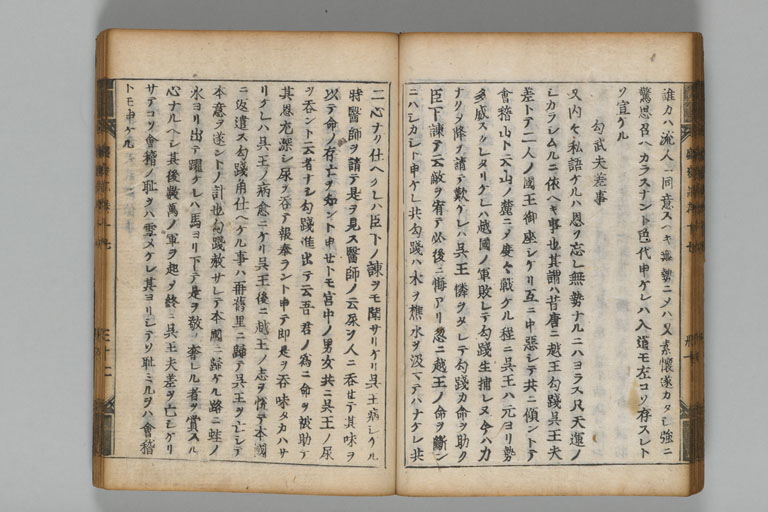 誰カハ流人ニ同意スヘキ無勢ニメハ又素懐遂カタシ強ニ
驚思召ヘカラスナント色代申ケレハ入道モ左コソ存スレト
ソ宣ケル
勾武夫差事
又内々私語ケルハ恩ヲ忘レ無勢ナルニハヨラス只天運ノ
シカラシムルニ依ヘキ事也其謂ハ昔唐ニ越王勾践呉王夫
差トテ二人ノ國王御座シケリ互ニ中悪シテ共ニ傾ントテ
會稽山ト云山ノ麓ニノ度々戦ケル程ニ呉王ハ元ヨリ勢
多威スクレタリケレハ越國ノ軍敗レテ勾践生捕レヌ今ハ力
ナリ夕降ヲ請テ歎ケレハ呉王憐ヲタレテ勾践カ命ヲ助ク
臣下諌テ云敵ヲ宥テ必後ニ悔アリ忽ニ越王ノ命ヲ断ン
ニハシカシト申ケレ共勾践ハ木ヲ樵水ヲ汲マテハナケレ共
二心ナリ仕ヘケレハ臣下ノ諌ヲモ聞サリケリ呉王病シケル
時醫師ヲ請テ是ヲ見ス醫師ノ云尿ヲ人ニ呑セテ其味ヲ
以テ命ノ存亡ヲ知ント申セトモ宮中ノ男女共ニ呉王ノ尿
ヲ呑ント云者ナシ勾践進出テ云吾君ノ為ニ命ヲ被助テ
其恩尤深シ尿ヲ呑テ報奉ラント申テ即是ヲ呑味タカハサ
リケレハ呉王ノ病愈ニケリ呉王後ニ越王ノ志ヲ悦テ本國
ニ返遣ス勾践角仕ヘケル事ハ再舊里ニ歸テ呉王ヲ亡シテ
本意ヲ遂ントノ計也勾践敖サレテ本國ニ歸ケル路ニ蛙ノ
水ヨリ出テ躍ケレハ馬ヨリ下テ是ヲ敬フ奢レル者ヲ賞スル
心ナルヘシ其後數萬ノ軍ヲ起ヲ終ニ呉王夫差ヲ亡シケリ
サテコソ會稽ノ耻ヲハ雪メケレ其ヨリシテソ耻ミルヲハ會稽
トモ申ケル